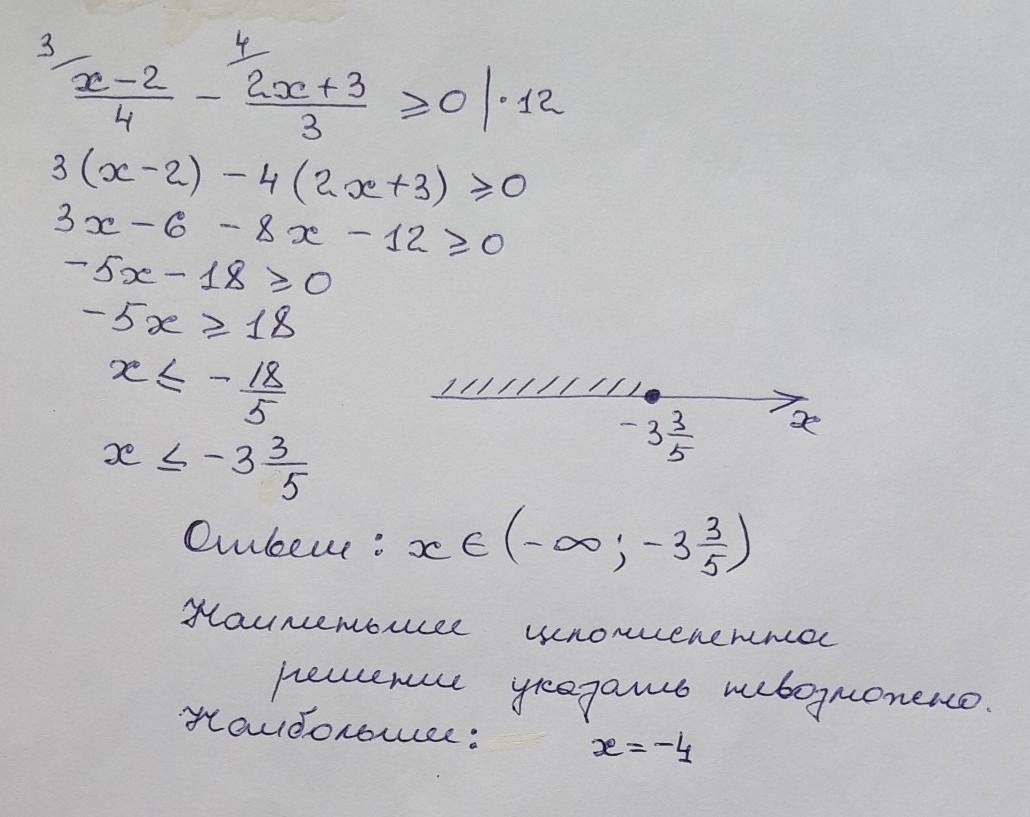 3/ (x-2)/4 - 4/ (2x+3)/3 ≥ 0 | · 12
3(x-2) - 4(2x+3) ≥ 0
3x - 6 - 8x - 12 ≥ 0
-5x - 18 ≥ 0
-5x ≥ 18
x ≤ - 18/5
x ≤ -3 3/5
-3 3/5
x
Ответ: x ∈ (-∞; -3 3/5)
Наименьшее целочисленное
решение указать невозможно.
Наибольшее: x = -4